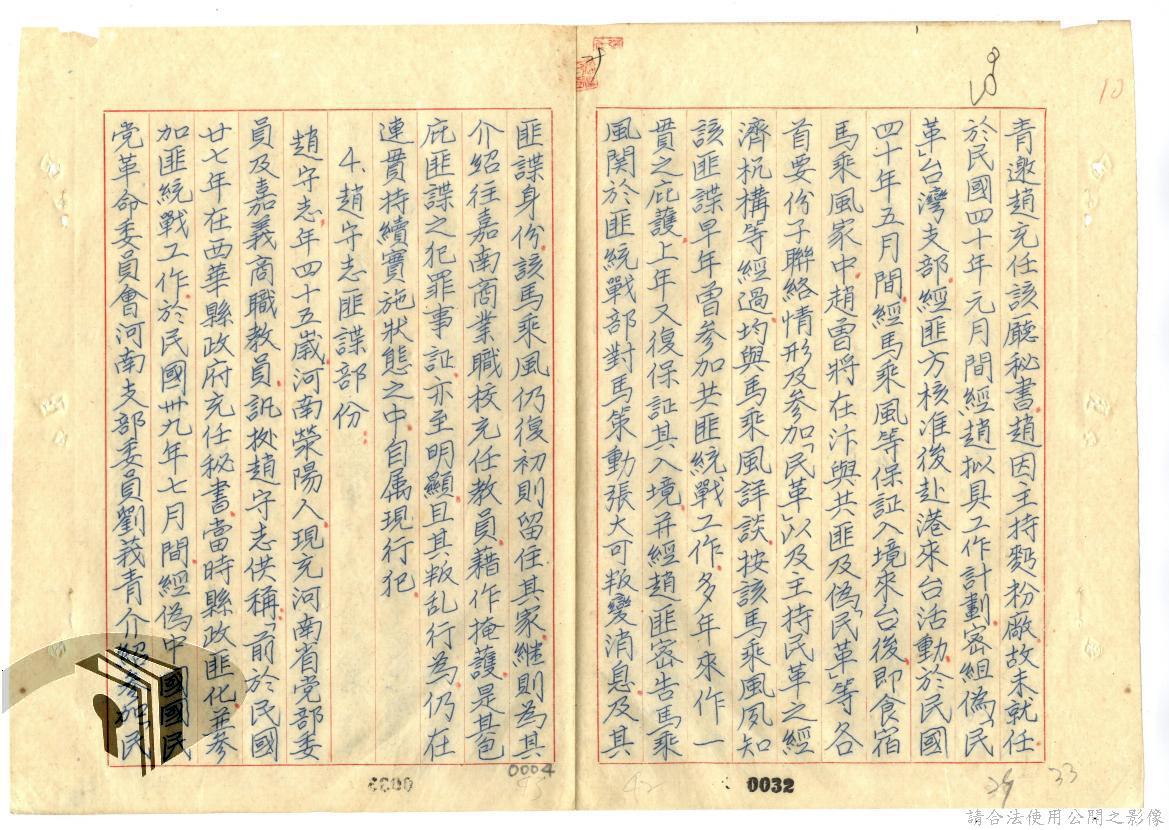 青邀趙充任該廳秘書趙因主持麪粉廠故未就任
於民國四十年元月間經趙拟具工作計劃密組偽「民
革」台灣支部經匪方核准後赴港來台活動於民國
四十年五月間經馬乘風等保証入境來台後即食宿
馬乘風家中趙曾將在汴與共匪及偽「民革」等各
首要份子聯絡情形及參加「民革」以及主持民革之經
濟机構等經過均與馬乘風詳談按該馬乘風夙知
該匪諜早年曾參加共匪統戰工作多年來作一
貫之庇護上年又復保証其入境并經趙匪密告馬乘
風関於匪統戰部對馬策動張大可叛變消息及其
匪諜身份該馬乘風仍復初則留住其家継則為其
介紹往嘉南商業職校充任教員藉作掩護是其包
庇匪諜之犯罪事証亦至明顯且其叛乱行為仍在
連貫持續實施狀態之中自属現行犯
4.趙守志匪諜部份
趙守志年四十五歲河南滎陽人現充河南省党部委
員及嘉義商職教員訊拠趙守志供稱：前於民國
廿七年在西華縣政府充任秘書當時縣政匪化並參
加匪統戰工作於民國卅九年七月間經偽中國國民
党革命委員會河南支部委員劉義青介紹參加民
10
0032
29
33
42
0004
0033
請合法使用公開之影像